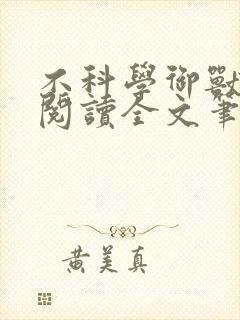 不科學御獸
閱讀全文筆
黃美真